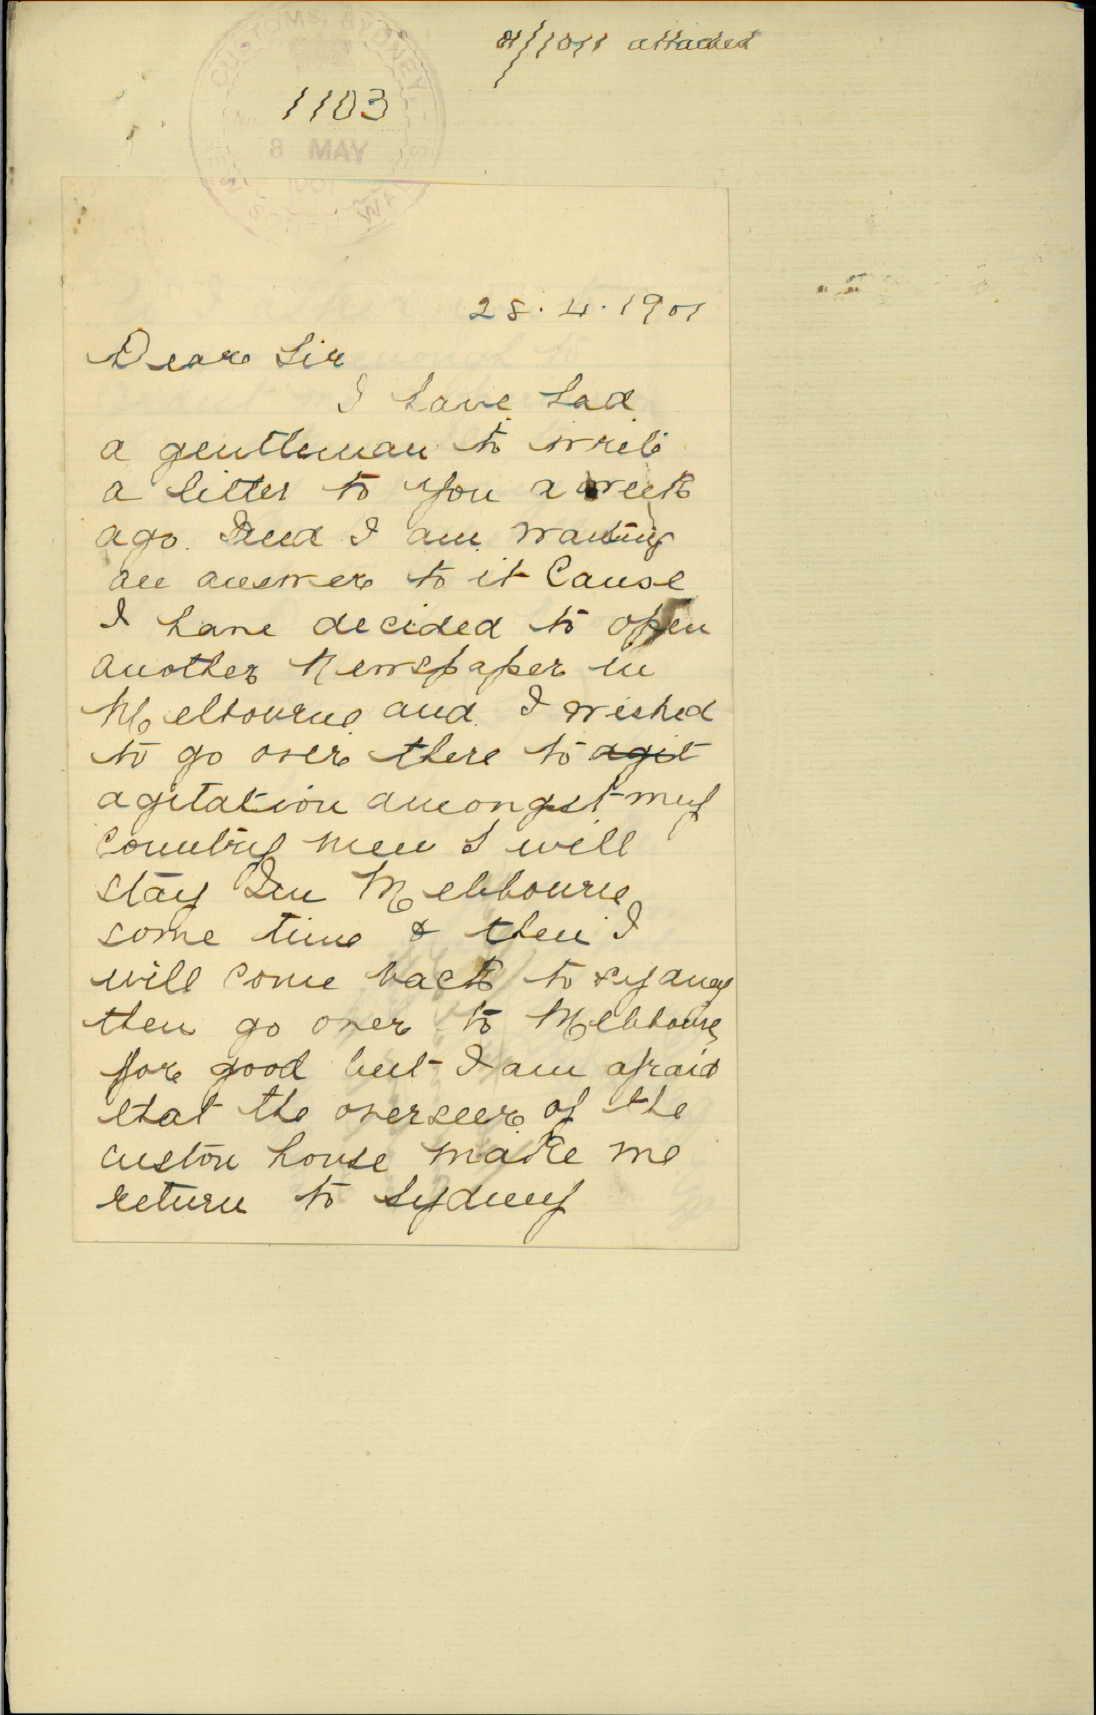 01/1071 attached
CUSTOMS SYDNEY
1103
8 MAY
1901
28.4.1901
Dear Sir
I have had
a gentleman to write
a litter to you a week
ago. Iand I am waiting
an answer to it Cause
I have decided to open
another Newspaper in
Melbourne and I wished
to go over there to agit
agitation amongst my
country men I will
stay In Melbourne
some time & then I
will come back to sydney
then go over to Melbourne
for good but I am afraid
that the overseer of the
custon house make me
return to Sydney